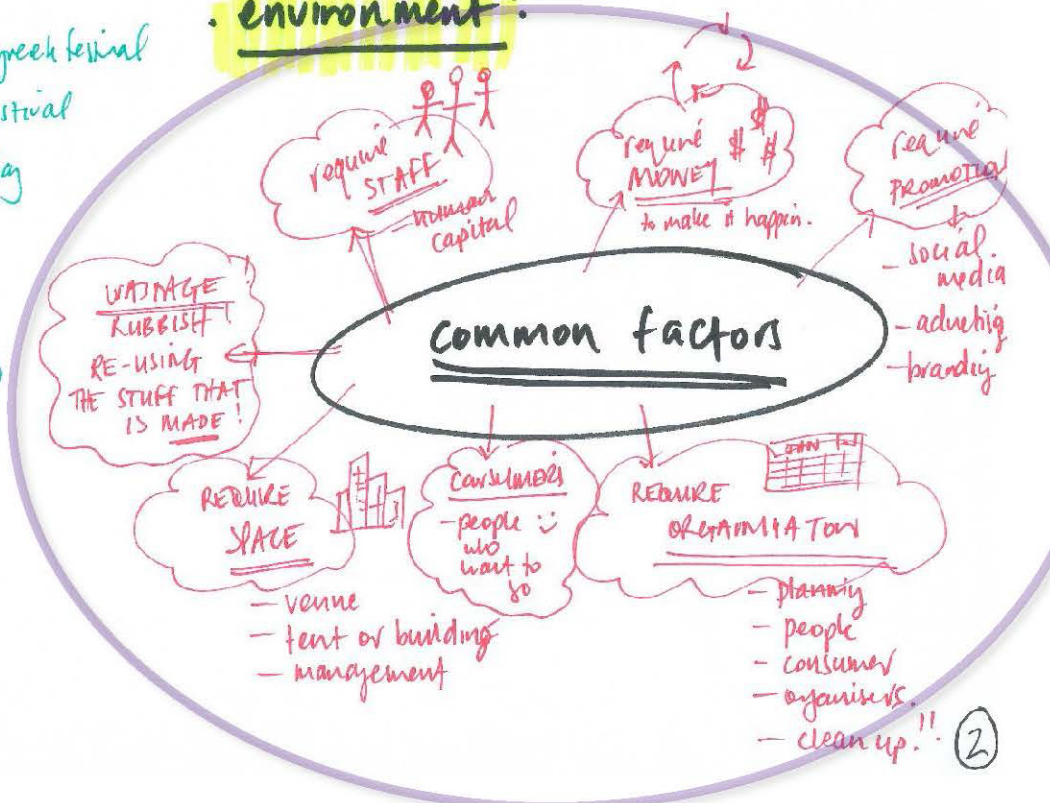 · environment ·
greek festival
stival
require
STAFF
- human
capital
require
MONEY
$ $ $
to make it happen.
require
PROMOTION
- social
media
- advertisig
- brandig
WASTAGE !
RUBBISH !
RE-USING
THE STUFF THAT
IS MADE !
common factors
REQUIRE
SPACE
- venue
- tent or building
- management
CONSUMERS
- people
who
want to
go
REQUIRE
ORGANISATION
JAN
- planning
- people
- consumer
- organisers.
- clean up.!!
2